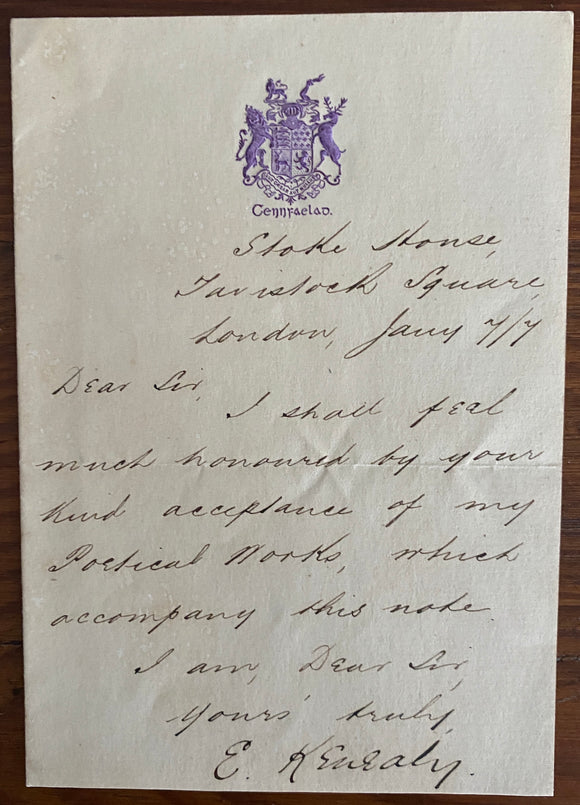 Cennfaelad.
Stoke House,
Tavistock Square,
London, Jany 7/7
Dear Sir,
I shall feel
much honoured by your
kind acceptance of my
Poetical Works, which
accompany this note.
I am, Dear Sir,
Yours truly,
E. Kenealy.